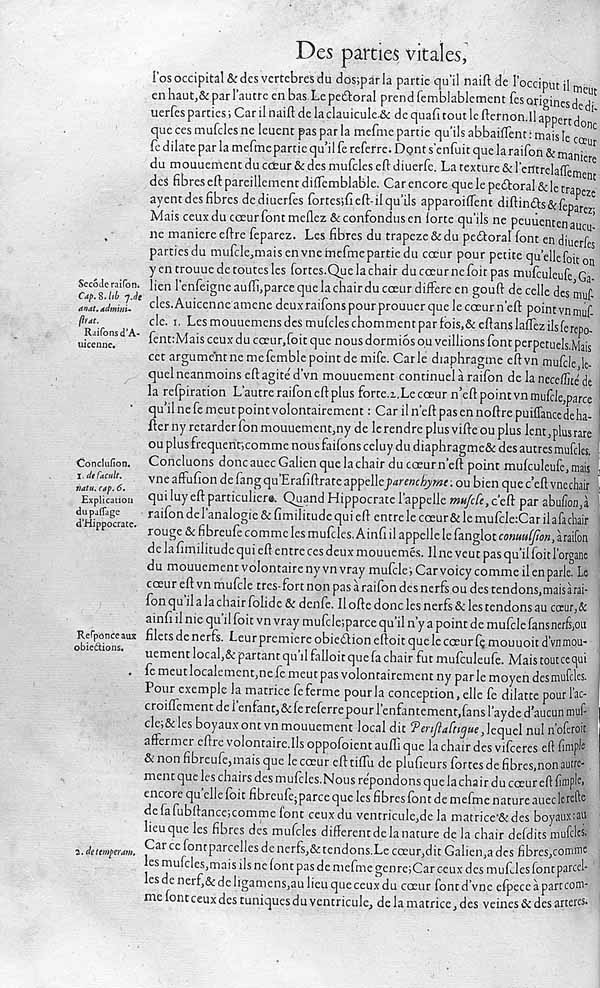 Des parties vitales,
l'os occipital & des vertebres du dos; par la partie qu'il naiſt de l'occiput il meut
en haut, & par l'autre en bas. Le pectoral prend ſemblablement ſes origines de di-
uerſes parties; Car il naiſt de la clauicule & de quaſi tout le ſternon. Il appert donc
que ces muſcles ne leuent pas par la meſme partie qu'ils abbaiſſent: mais le cœur
ſe dilate par la meſme partie qu'il ſe reſerre. Dont s'enſuit que la raiſon & maniere
du mouuement du cœur & des muſcles eſt diuerſe. La texture & l'entrelaſſement
des fibres eſt pareillement diſſemblable. Car encore que le pectoral & le trapeze
ayent des fibres de diuerſes ſortes; ſi eſt-il qu'ils apparoiſſent diſtincts & ſeparez;
Mais ceux du cœur ſont meſlez & confondus en ſorte qu'ils ne peuuent en aucu-
ne maniere eſtre ſeparez. Les fibres du trapeze & du pectoral ſont en diuerſes
parties du muſcle, mais en vne meſme partie du cœur pour petite qu'elle ſoit on
y en trouue de toutes les ſortes. Que la chair du cœur ne ſoit pas muſculeuſe, Ga-
Secõde raiſon.
Cap. 8. lib 7. de
anat. admini-
ſtrat.
lien l'enſeigne auſſi, parce que la chair du cœur differe en gouſt de celle des muſ-
cles. Auicenne amene deux raiſons pour prouuer que le cœur n'eſt point vn muſ-
Raiſons d'A-
uicenne.
cle. 1. Les mouuemens des muſcles chomment par fois, & eſtans laſſez ils ſe repo-
ſent: Mais ceux du cœur, ſoit que nous dormiõs ou veillions ſont perpetuels. Mais
cet argument ne me ſemble point de miſe. Car le diaphragme eſt vn muſcle, le-
quel neanmoins eſt agité d'vn mouuement continuel à raiſon de la neceſſité de
la reſpiration L'autre raiſon eſt plus forte. 2. Le cœur n'eſt point vn muſcle, parce
qu'il ne ſe meut point volontairement: Car il n'eſt pas en noſtre puiſſance de ha-
ſter ny retarder ſon mouuement, ny de le rendre plus viſte ou plus lent, plus rare
ou plus frequent; comme nous faiſons celuy du diaphragme & des autres muſcles.
Concluſion.
1. de facult.
natu. cap. 6.
Concluons donc auec Galien que la chair du cœur n'eſt point muſculeuſe, mais
vne affuſion de ſang qu'Eraſiſtrate appelle parenchyme: ou bien que c'eſt vne chair
Explication
du paſſage
d'Hippocrate.
qui luy eſt particuliere. Quand Hippocrate l'appelle muſcle, c'eſt par abuſion, à
raiſon de l'analogie & ſimilitude qui eſt entre le cœur & le muſcle: Car il a ſa chair
rouge & fibreuſe comme les muſcles. Ainſi il appelle le ſanglot conuulſion, à raiſon
de la ſimilitude qui eſt entre ces deux mouuemẽs. Il ne veut pas qu'il ſoit l'organe
du mouuement volontaire ny vn vray muſcle; Car voicy comme il en parle. Le
cœur eſt vn muſcle tres-fort non pas à raiſon des nerfs ou des tendons, mais à rai-
ſon qu'il a la chair ſolide & denſe. Il oſte donc les nerfs & les tendons au cœur, &
ainſi il nie qu'il ſoit vn vray muſcle; parce qu'il n'y a point de muſcle ſans nerfs, ou
Reſponce aux
obiections.
filets de nerfs. Leur premiere obiection eſtoit que le cœur ſe mouuoit d'vn mou-
uement local, & partant qu'il falloit que ſa chair fut muſculeuſe. Mais tout ce qui
ſe meut localement, ne ſe meut pas volontairement ny par le moyen des muſcles.
Pour exemple la matrice ſe ferme pour la conception, elle ſe dilatte pour l'ac-
croiſſement de l'enfant, & ſe reſerre pour l'enfantement, ſans l'ayde d'aucun muſ-
cle; & les boyaux ont vn mouuement local dit Periſtaltique, lequel nul n'oſeroit
affermer eſtre volontaire. Ils oppoſoient auſſi que la chair des viſceres eſt ſimple
& non fibreuſe, mais que le cœur eſt tiſſu de pluſieurs ſortes de fibres, non autre-
ment que les chairs des muſcles. Nous répondons que la chair du cœur eſt ſimple,
encore qu'elle ſoit fibreuſe; parce que les fibres ſont de meſme nature auec le reſte
de ſa ſubſtance; comme ſont ceux du ventricule, de la matrice & des boyaux: au
lieu que les fibres des muſcles different de la nature de la chair deſdits muſcles.
2. de temperam.
Car ce ſont parcelles de nerfs, & tendons. Le cœur, dit Galien, a des fibres, comme
les muſcles, mais ils ne ſont pas de meſme genre; Car ceux des muſcles ſont parcel-
les de nerf, & de ligamens, au lieu que ceux du cœur ſont d'vne eſpece à part com-
me ſont ceux des tuniques du ventricule, de la matrice, des veines & des arteres.